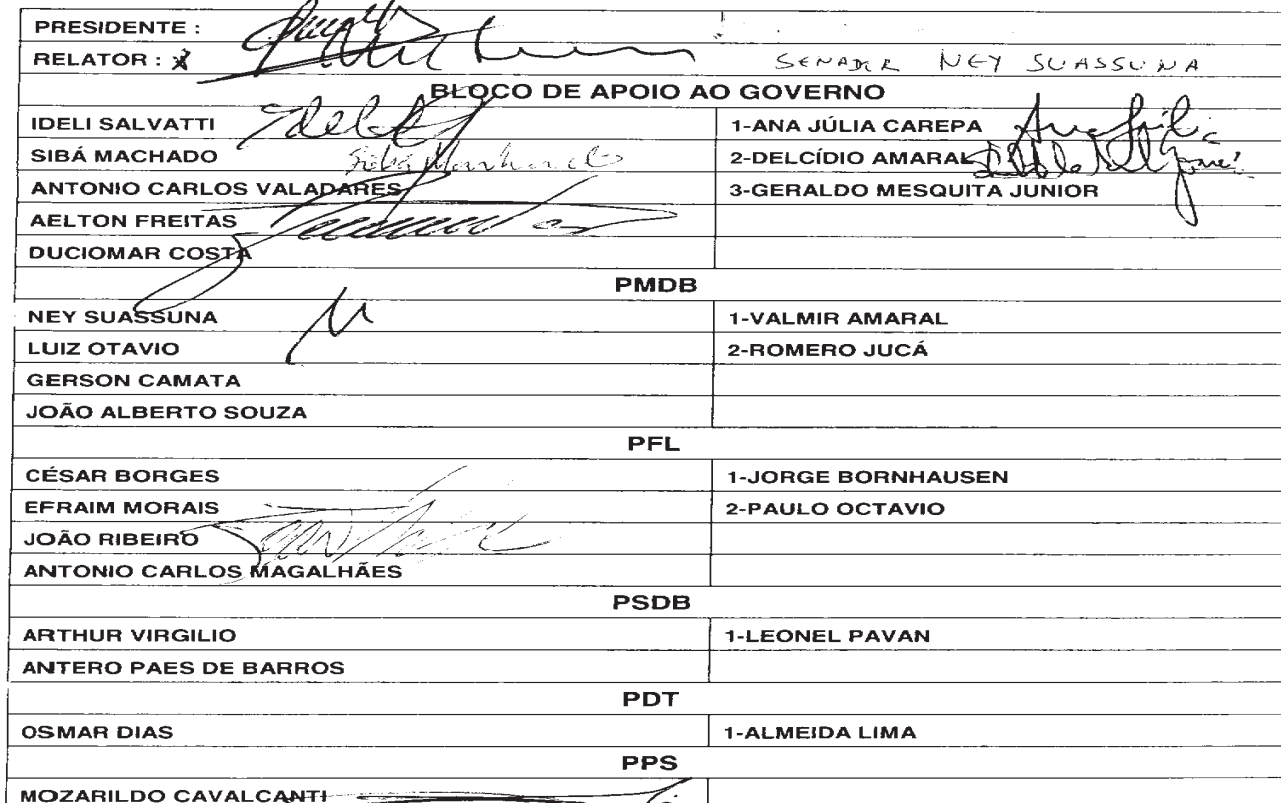 PRESIDENTE :
RELATOR : x SENADOR NEY SUASSUNA
BLOCO DE APOIO AO GOVERNO
IDELI SALVATTI 1-ANA JÚLIA CAREPA
SIBÁ MACHADO Sibá Machado 2-DELCÍDIO AMARAL
ANTONIO CARLOS VALADARES 3-GERALDO MESQUITA JUNIOR
AELTON FREITAS
DUCIOMAR COSTA
PMDB
NEY SUASSUNA 1-VALMIR AMARAL
LUIZ OTAVIO 2-ROMERO JUCÁ
GERSON CAMATA
JOÃO ALBERTO SOUZA
PFL
CÉSAR BORGES 1-JORGE BORNHAUSEN
EFRAIM MORAIS 2-PAULO OCTAVIO
JOÃO RIBEIRO
ANTONIO CARLOS MAGALHÃES
PSDB
ARTHUR VIRGILIO 1-LEONEL PAVAN
ANTERO PAES DE BARROS
PDT
OSMAR DIAS 1-ALMEIDA LIMA
PPS
MOZARILDO CAVALCANTI